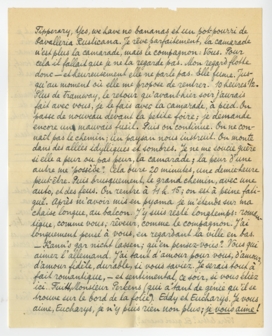 Tipperary, Yes, we have no bananas et un potpourri de
Cavalleria Rusticana. Je rêve parfaitement, la camarade
n'est plus la camarade, mais le compagnon : Vous. Pour
cela il fallait que je ne la regarde pas. Mon regard flotte
donc — et heureusement elle ne parle pas. Elle fume, jus-
qu'au moment où elle me propose de rentrer. 10 heures ½.
Plus de tramway, le retour qu'avant hier soir j'aurais
fait avec vous, je le fais avec la camarade, à pied. On
passe de nouveau devant la petite foire; je demande
encore une mauvaise vieil. Puis on continue. On ne con-
nait pas le chemin; un paysan nous instruit. On monte
dans des allées idylliques et sombres. Je ne me soucie guère
si elle a peur ou pas peur, la camarade; la peur d'une
autre ma "poésie". Cela dure 20 minutes, une demi heure
peut-être. Puis brusquement, le grand chemin, avec une
auto, et des feux. On rentre à 11 h 15; on est à peine fati-
gué. Après m'avoir mis en pyjama je m'étends sur ma
chaise longue, au balcon. J'y suis resté longtemps : roma-
tique, comme vous, rêveur, comme le compagnon. J'ai
longuement pensé à vous, en regardant la ville en bas
— Kann's gar nicht lassen; qu'en pensez-vous? Vous qui
aimez l'allemand. J'ai tant d'amour pour vous, d'amour,
d'amour fidèle, durable, si vous saviez. Je serais tout à
fait romantique, — et sentimental, ce soir, si vous étiez
ici
trouve sur le bord de la voie). Eddy et Eucharys. Je vous
aime, Eucharys, je n'y plus rien non plus; je vous aime!